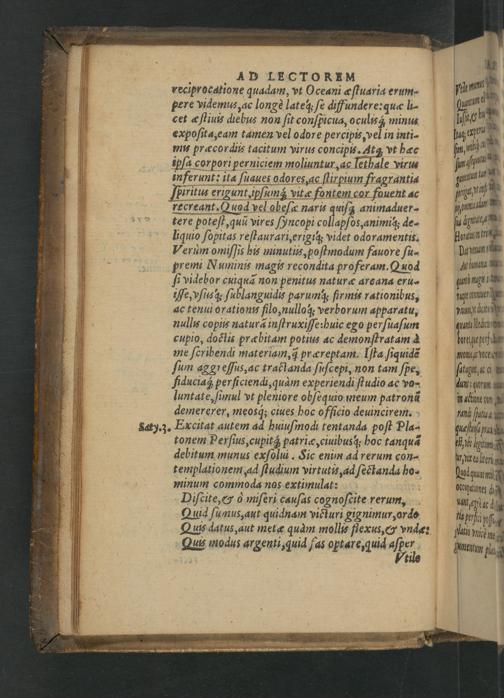 AD LECTOREM
reciprocatione quadam, vt Oceani æstuaria erum-
pere videmus, ac longè lateq; se diffundere: quæ li-
cet æstiuis diebus non sit conspicua, oculisq; minus
exposita, eam tamen vel odore percipis, vel in inti-
mis præcordiis tacitum virus concipis. Atq; vt hæc
ipsa corpori perniciem moliuntur, ac lethale virus
inferunt: ita suaues odores, ac stirpium fragrantia
spiritus erigunt, ipsumq; vitæ fontem cor fouent ac
recreant. Quod vel obesæ naris quisq; animaduer-
tere potest, quū vires syncopi collapsos, animiq; de-
liquio sopitas restaurari, erigiq; videt odoramentis.
Verùm omissis his minutiis, postmodum fauore su-
premi Numinis magis recondita proferam. Quod
si videbor cuiquā non penitus naturæ arcana eru-
isse, vsusq; sublanguidis parumq; firmis rationibus,
ac tenui orationis filo, nulloq; verborum apparatu,
nullis copiis naturā instruxisse: huic ego persuasum
cupio, doctis præbitam potius ac demonstratam à
me scribendi materiam, q̃ præreptam. Ista siquidē
sum aggressus, ac tractanda suscepi, non tam spe,
fiduciaq; perficiendi, quàm experiendi studio ac vo-
luntate, simul vt pleniore obsequio meum patronū
demererer, meosq; ciues hoc officio deuincirem.
Saty.3. Excitat autem ad huiusmodi tentanda post Pla-
tonem Persius, cupitq; patriæ, ciuibusq; hoc tanquā
debitum munus exsolui. Sic enim ad rerum con-
templationem, ad studium virtutis, ad sectanda ho-
minum commoda nos extimulat:
Discite, & ô miseri causas cognoscite rerum,
Quid sumus, aut quidnam victuri gignimur, ordo
Quis datus, aut metæ quàm mollis flexus, & vndæ:
Quis modus argenti, quid fas optare, quid asper
Vtile